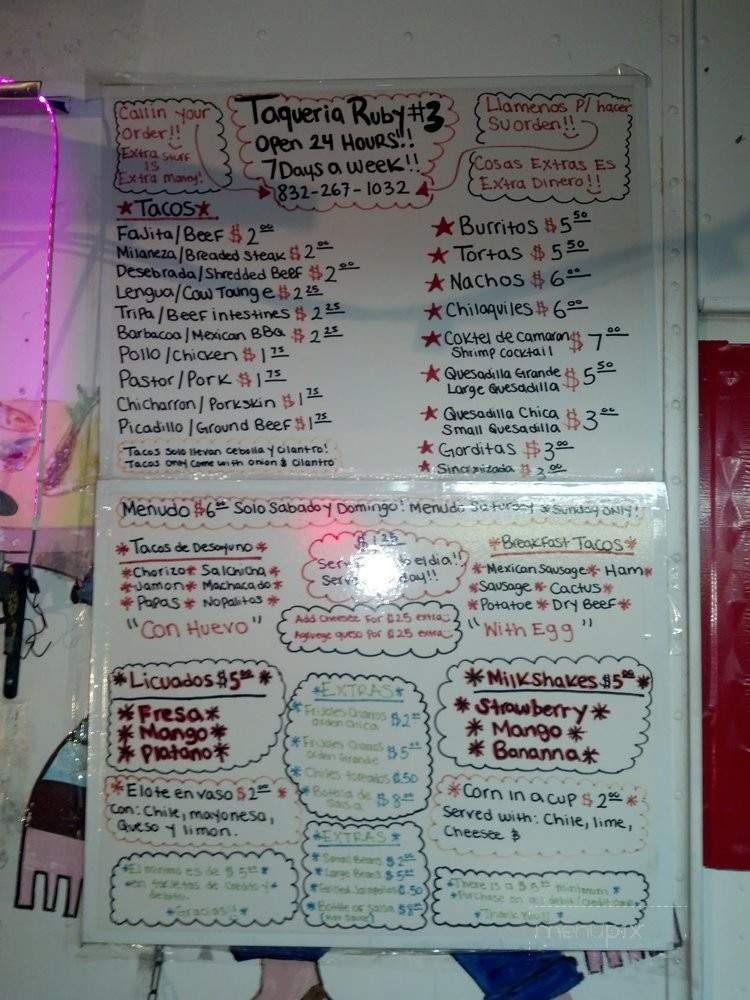 Call in your
Order!!
Extra stuff
is
Extra money!
Taqueria Ruby #3
Open 24 Hours!!
7 Days a week!!
832-267-1032
Llamenos P/ hacer
Su orden!!
Cosas Extras Es
Extra Dinero!!
Tacos
Fajita/Beef $2.00
Milaneza/Breaded Steak $2.00
Desebrada/Shredded Beef $2.00
Lengua/Cow Tounge $2.25
Tripa/Beef intestines $2.25
Barbacoa/Mexican BBQ $2.25
Pollo/Chicken $1.75
Pastor/Pork $1.75
Chicharron/Porkskin $1.75
Picadillo/Ground Beef $1.75
Tacos solo llevan cebolla y cilantro!
Tacos only come with onion & cilantro
Burritos $5.50
Tortas $5.50
Nachos $6.00
Chilaquiles $6.00
Coktel de Camaron $7.00
Shrimp cocktail
Quesadilla Grande $5.50
Large Quesadilla
Quesadilla Chica $3.00
Small Quesadilla
Gorditas $3.00
Sincronizada $3.00
Menudo $6.00 Solo Sabado y Domingo! Menudo Saturday & Sunday ONLY!
Tacos de Desayuno
Chorizo Salchicha
Jamon Machacado
Papas Nopalitos
"Con Huevo"
$1.25
el dia!!
day!!
Add Cheesee For ¢25 extra
Agregue queso por ¢25 extra
Breakfast Tacos
Mexican Sausage Ham
Sausage Cactus
Potatoe Dry Beef
"With Egg"
Licuados $5.00
Fresa
Mango
Platano
EXTRAS
Frijoles Charros $2.00
orden Chica
Frijoles Charros $5.00
orden Grande
Chiles toreados ¢.50
Botella de $8.00
Salsa
Milkshakes $5.00
Strawberry
Mango
Bananna
Elote en vaso $2.00
Con: Chile, mayonesa,
Queso y limon.
EXTRAS
Small Beans $2.00
Large Beans $5.00
Grilled Jalapeños ¢.50
Bottle of Salsa $8.00
Corn in a cup $2.00
Served with: Chile, lime,
Cheesee &
El minimo es de $5.00
en tarjetas de credito y
debito.
Gracias!!
There is a $5.00 minimum
Purchase on all debit/credit cards
Thank You!!
menupix